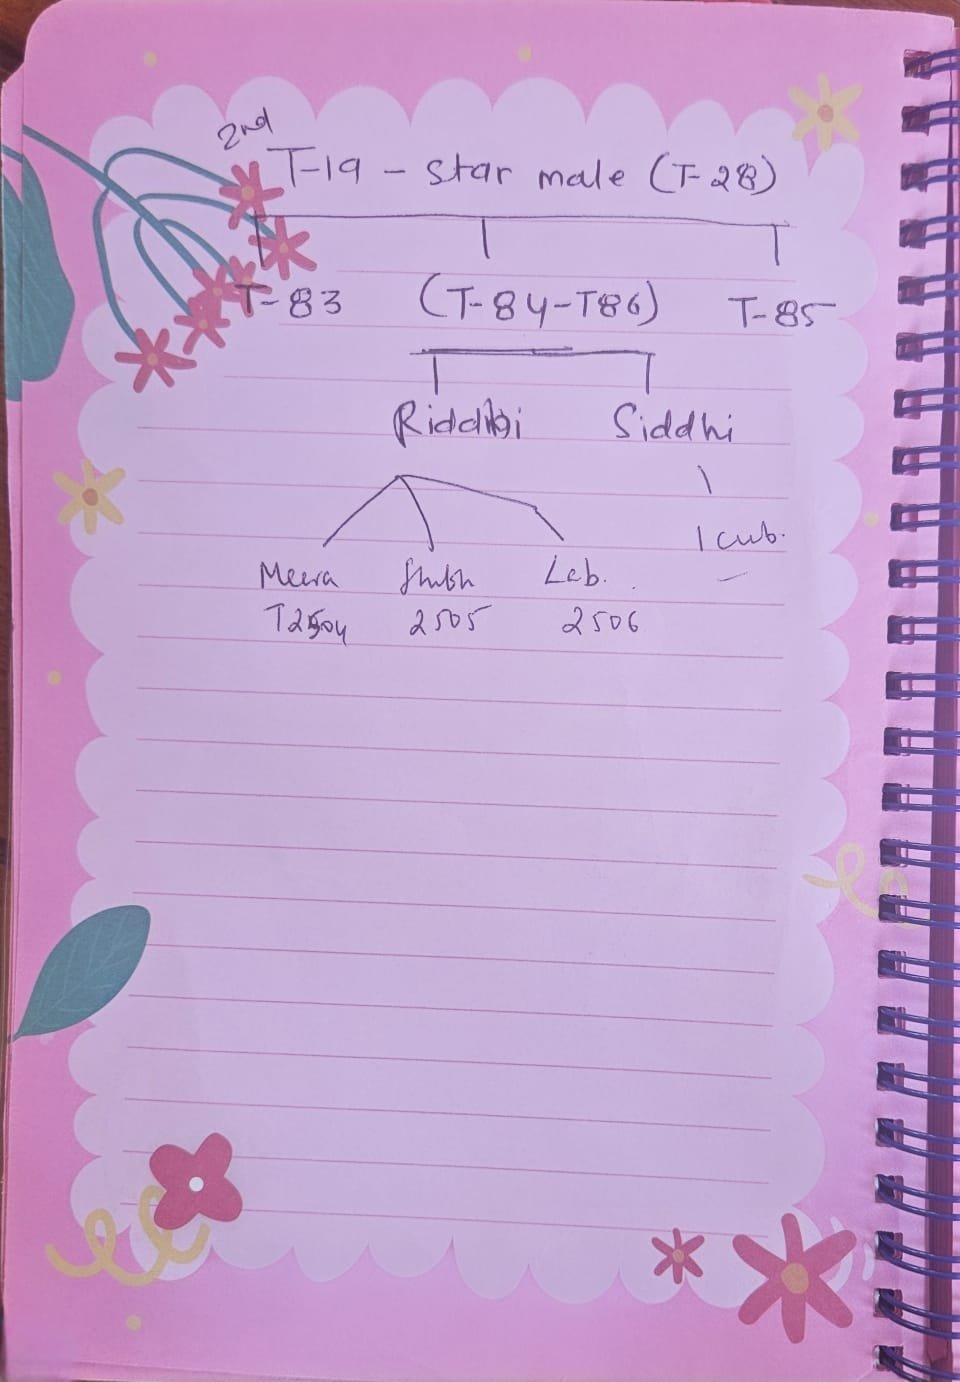 2nd
T-19 - star male (T-28)
T-83 (T-84-T86) T-85
Riddhi Siddhi
1 cub.
Meera Shubh Lab.
T2504 2505 2506